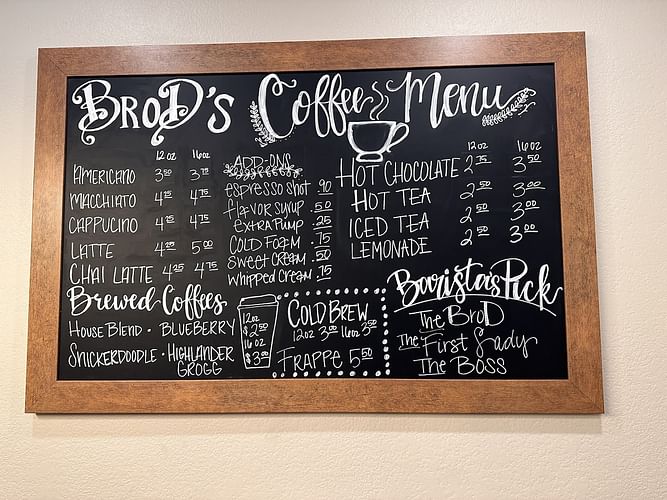 BroD's Coffee Menu
12 oz 16 oz
Americano 3 50 3 75
Macchiato 4 25 4 75
Cappucino 4 25 4 75
Latte 4 25 5 00
Chai Latte 4 25 4 75
Add-Ons
espresso shot .90
flavor syrup .50
extra pump .25
Cold Foam .75
Sweet Cream .50
Whipped Cream .75
12 oz 16 oz
Hot Chocolate 2 75 3 50
Hot Tea 2 50 3 00
Iced Tea 2 50 3 00
Lemonade 2 50 3 00
Brewed Coffees
House Blend · Blueberry
Snickerdoodle · Highlander
Grogg
12oz
$2 50
16 oz
$3 00
Cold Brew
12oz 3 00 16oz 3 50
Frappe 5 50
Barista's Pick
The BroD
The First Lady
The Boss